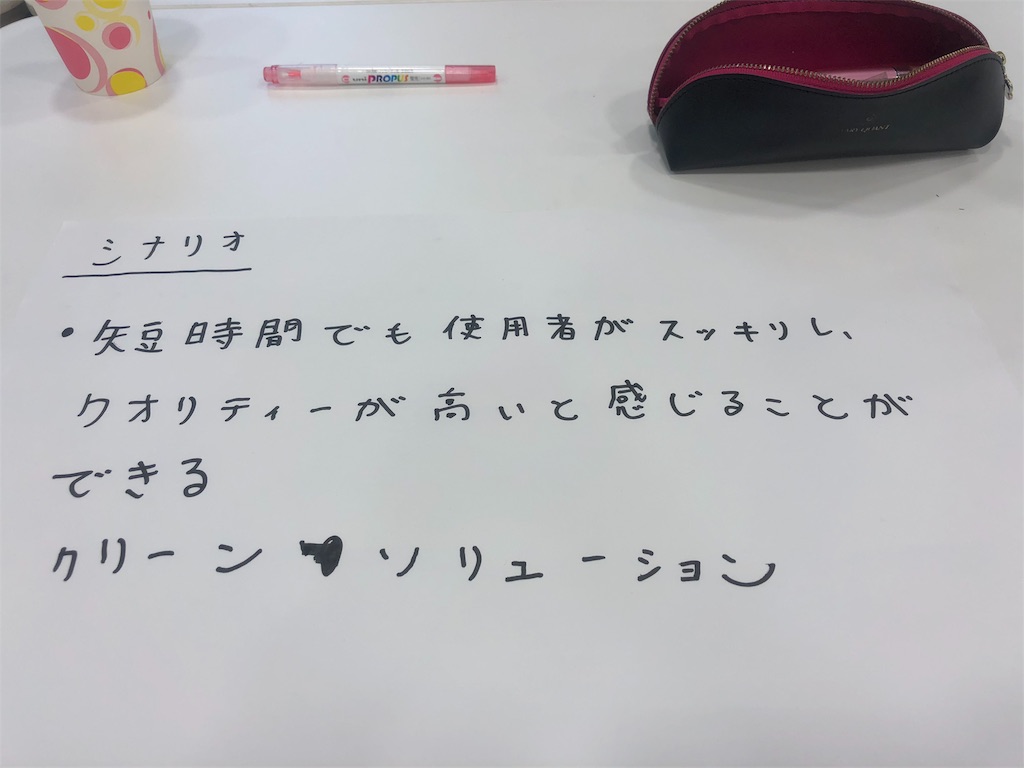 uni PROPUS
シナリオ
• 短時間でも使用者がスッキリし、
クオリティーが高いと感じることが
できる
クリーン ソリューション